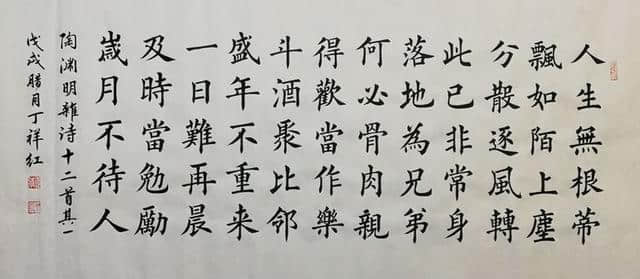 人生無根蒂
飄如陌上塵
分散逐風轉
此已非常身
落地為兄弟
何必骨肉親
得歡當作樂
斗酒聚比邻
盛年不重来
一日難再晨
及時當勉勵
歲月不待人
陶渊明雜诗十二首其一
戊戌腊月丁祥红